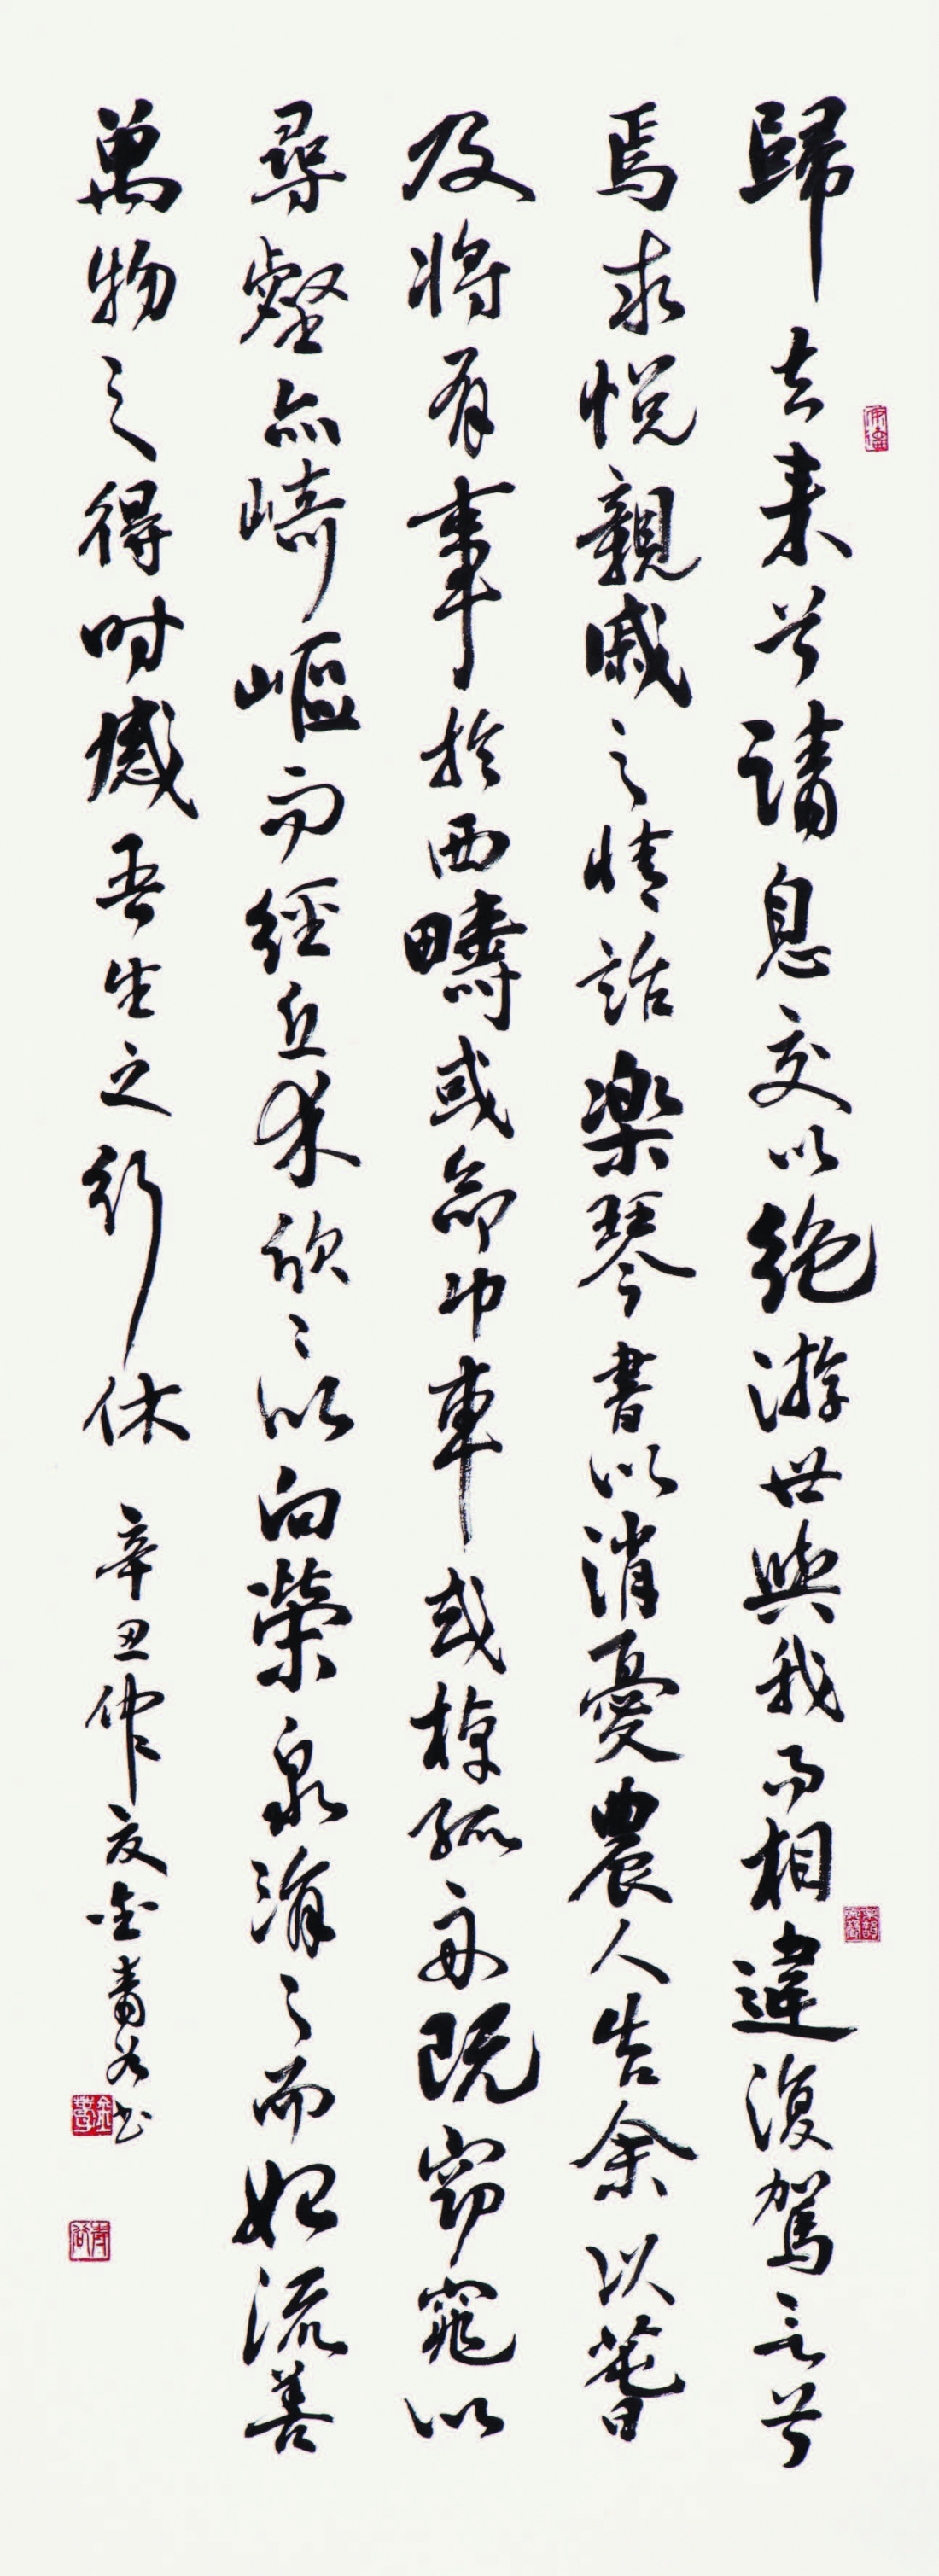 歸去来兮請息交以絶游世與我而相違復駕言兮
焉求悦親戚之情話楽琴書以消憂農人告余以萅
及将有事於西疇或命巾車或棹孤舟既窈窕以
尋壑亦崎嶇而經丘木欣々以向榮泉涓々而始流善
萬物之得時感吾生之行休 辛丑仲夏金书